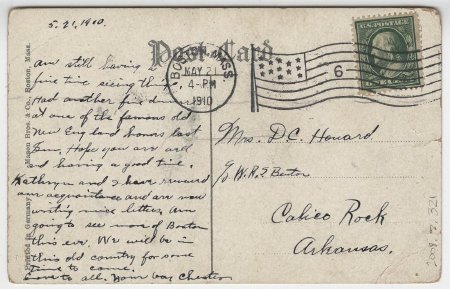 5-21, 1910.
Post Card
BOSTON, MASS.
MAY 21
4-PM
1910
6
U.S. POSTAGE
am still having a
fine time seeing things.
Had another fine dinner
at one of the famous old
New England homes last
Hope you are well
and having a good time.
Kathryn and I have renewed
our acquaintance and are now
writing nice letters. Am
going to see more of Boston
this eve. We will be in
this old country for some
time to come.
Love to all. Your boy Chester
Mrs. D.C. Howard
c/o W.R.
Calico Rock
Arkansas.
Bros. & Co., Boston, Mass.
Printed in Germany
2008.7.321